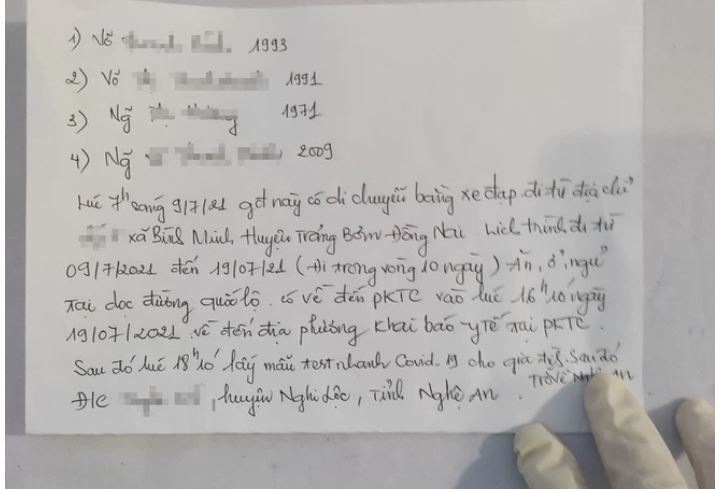 1) Võ 1993
2) Võ 1991
3) Ng̃ 1971
4) Ng̃ 2009
Lúc 7h sáng 9/7/21 gđ này có di chuyển bằng xe đạp đi từ địa chỉ
xã Bình Minh, Huyện Trảng Bom - Đồng Nai. Lịch trình đi từ
09/7/2021 đến 19/07/21 (Đi trong vòng 10 ngày) Ăn, ở, ngủ
tại dọc đường quốc lộ. có về đến PKTC vào lúc 16h10 ngày
19/07/2021 về đến địa phương khai báo y tế tại PKTC.
Sau đó lúc 18h10' lấy mẫu test nhanh Covid-19 cho gia đình. Sau đó
Trở về Nghệ An
Đ/c , huyện Nghi Lộc, Tỉnh Nghệ An.